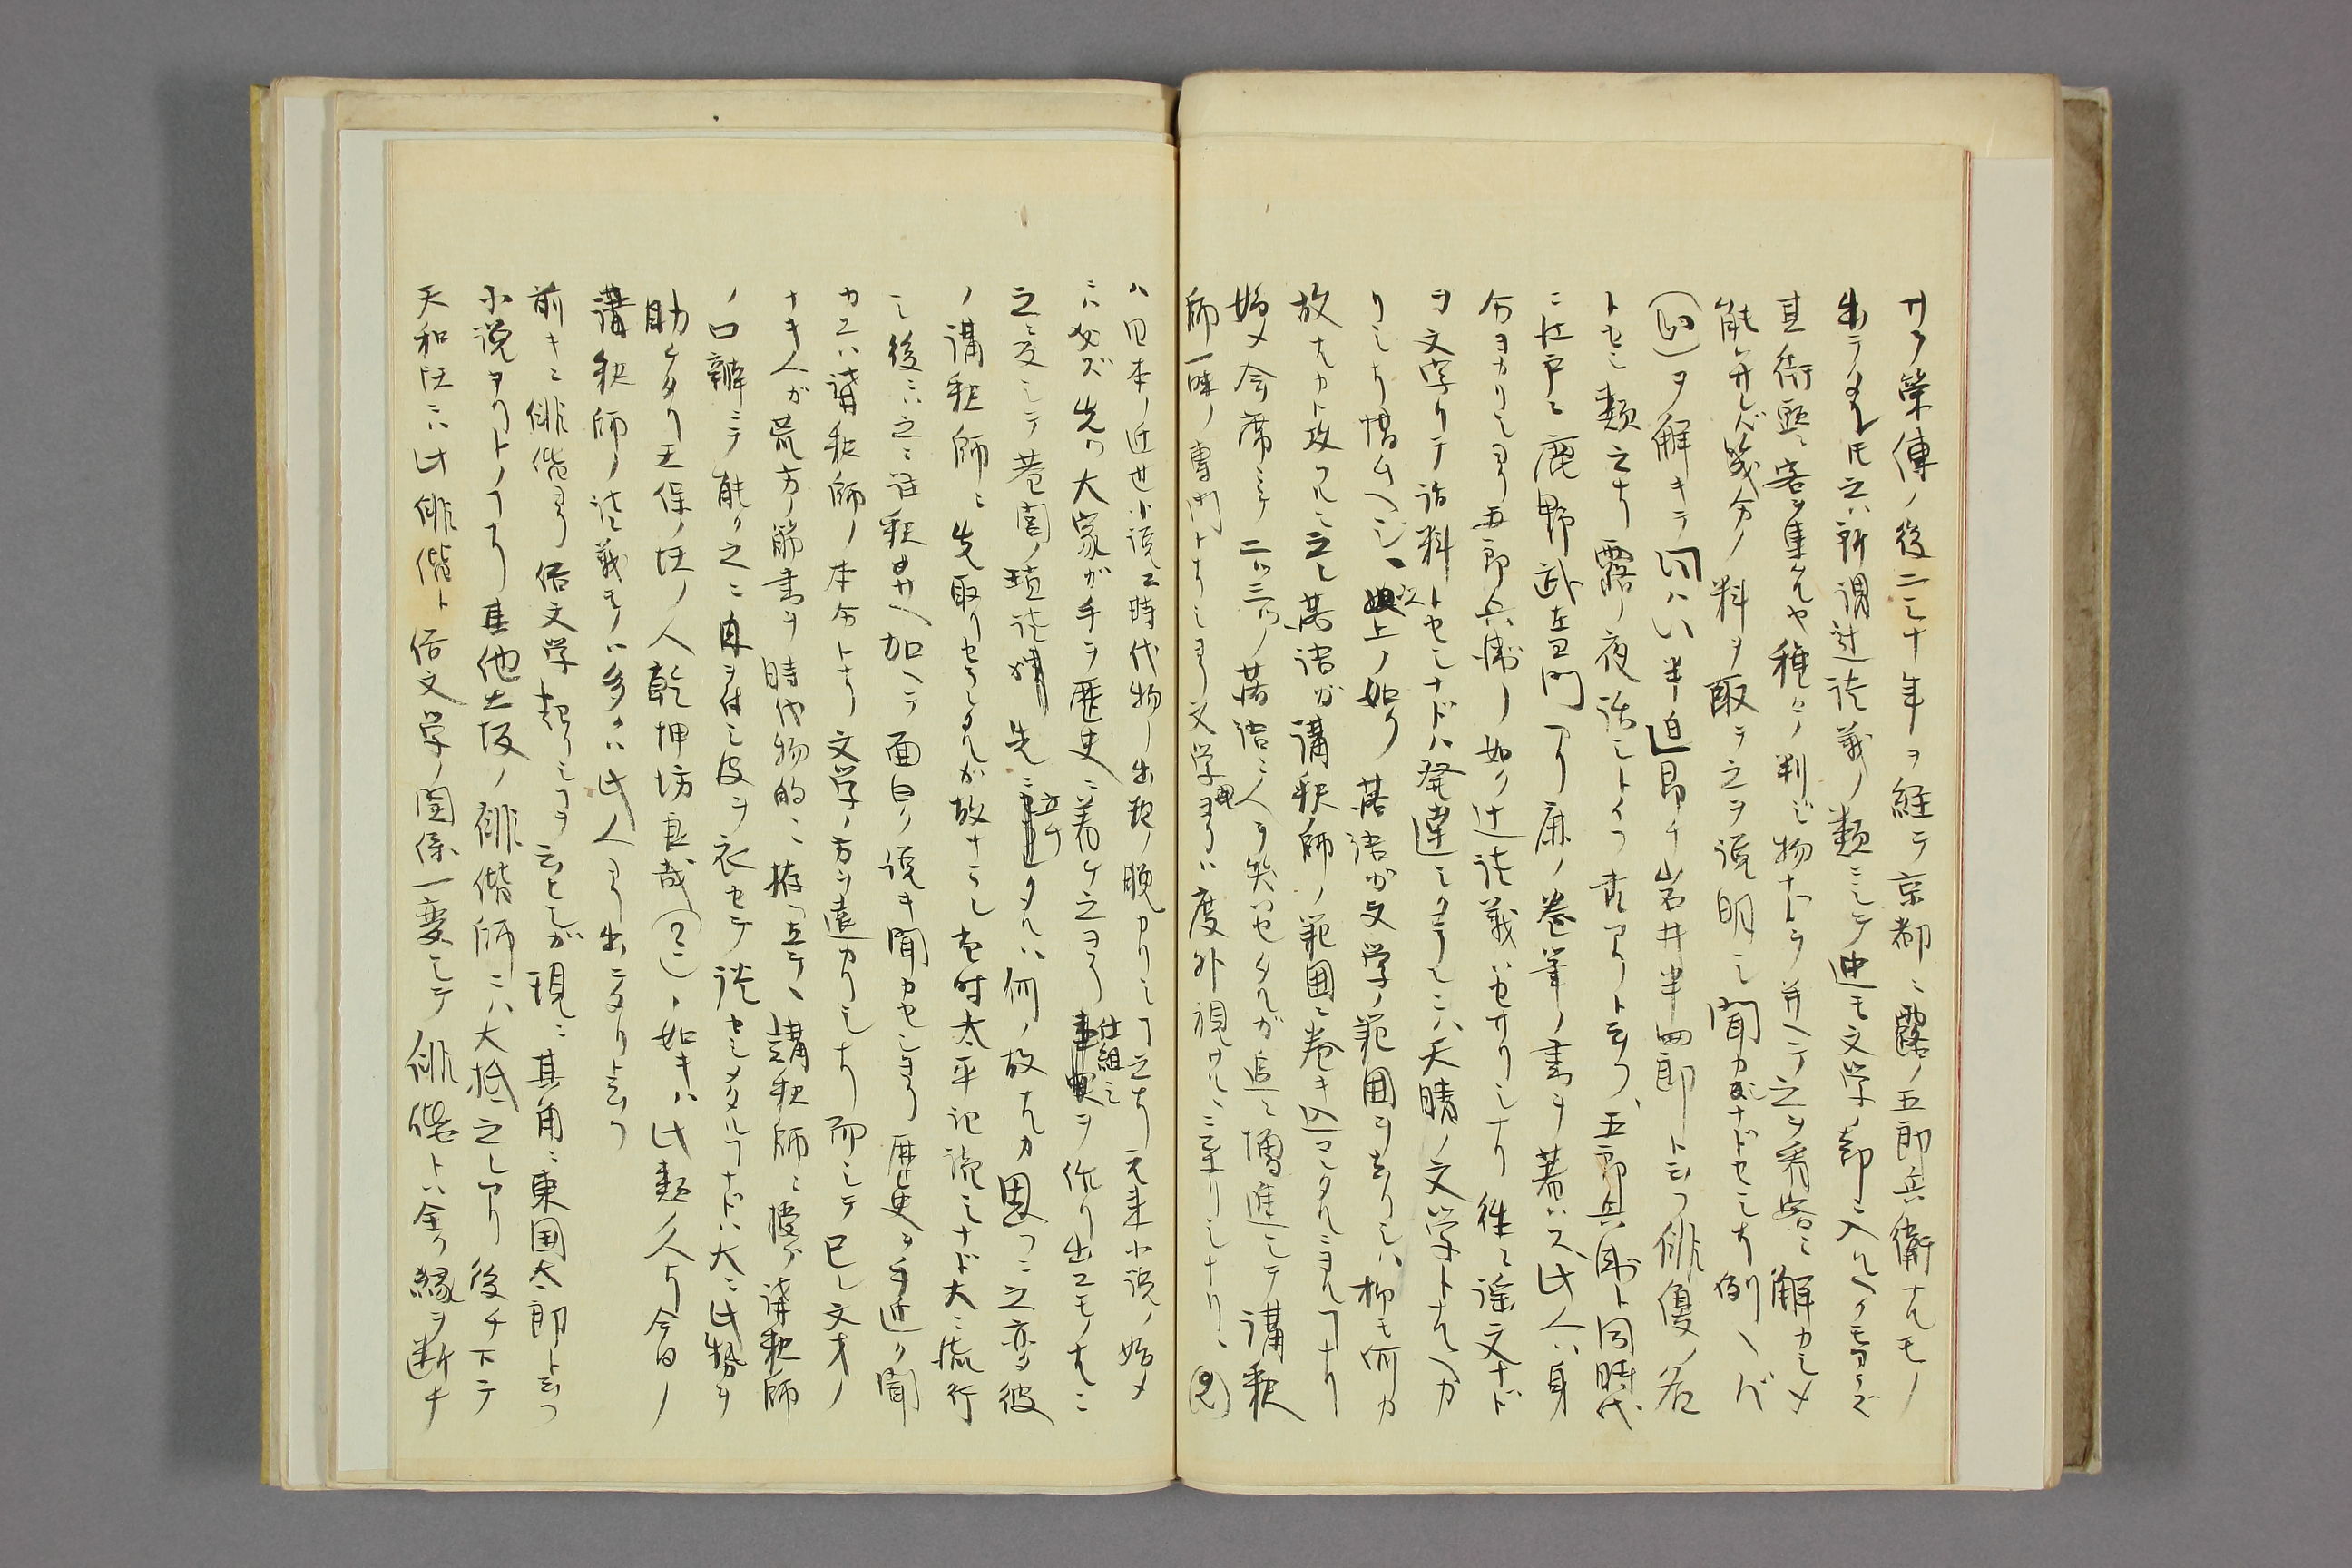 サヲ策傳ノ後二三十年ヲ経テ京都ニ露ノ五郎兵衛ナルモノ
出テタレ𪜈之ハ所謂辻談義ノ類ニシテ迚モ文学ノ部ニ入ルヘクモアラズ
其街頭ニ客ヲ集ルヤ種々ノ判ジ物ナドヲ并ヘテ之ヲ看客ニ解カシメ
能弁レバ笑分ノ料ヲ取テ之ヲ説明シ聞カムナドセシナリ例ヘバ
ヲ解キテ 半迫即チ岩井半四郎ト云フ俳優ノ名
トセシ類之ナリ露ノ夜話シトイフ書アリト云フ、五郎兵衛ト同時代
ニ江戸ニ鹿野武左エ門アリ鹿ノ巻筆ノ書ヲ著ハス此人ハ身
分ヨカリシヨリ五郎兵衛ノ如ク辻談義ハセザリシナリ徃々滛文ナド
ヲ文字リテ話料トセシナドハ発達シタランニハ天晴ノ文学トナルヘカ
リシナリ惜ムヘシ、以上ノ如ク落語ガ文学ノ範囲ヲ去リシハ抑モ何カ
故ナルカト攻フルニ之レ落語ガ講釈師ノ範囲ニ巻キ込マレタルニヨルコトナリ
始メ会席ニテ二ツ三ツノ落語ニ人ヲ笑ハセタルガ追々増進シテ講釈
師一味ノ専門トナリシヨリ文学史ヨリハ度外視サルニ至リシナリ、
ハ日本ノ近世小説ニ時代物ノ出現ノ晩カリシコト之ナリ元来小説ノ始メ
ニハ必ズ先ツ大家ガ手ヲ歴史ニ着ケ之ヨリ仕組シヲ作リ出スモノナルニ
之ニ反シテ巷間ノ瑣談ガ先ニ立チタルハ何ノ故ナルカ思フニ之亦タ彼
ノ講釈師ニ先取リセラレタルガ故ナラン当時太平記読ミナド大ニ流行
シ後ニハ之ニ註釈サヘ加ヘテ面白ク説キ聞カセシヨリ歴史ヲ手近ク聞
カスハ講釈師ノ本分トナリ文学ノ方ヲ遠カリシナリ而シテ已レ文才ノ
ナキ人ガ荒方ノ筋書ヲ時代物的ニ拵ヘ立テ、講釈師ニ授ケ講釈師
ノ口辯ニテ能ク之ニ肉ヲ付ヒ皮ヲ衣セテ談セシメタルコトナドハ大ニ此勢ヲ
助ケタリ天保ノ比ノ人乾坤坊良哉(?)ノ如キハ此類ノ人ナリ今日ノ
講釈師ノ談義モノハ多クハ此人ヨリ出テタリト云フ
前キニ俳偕ヨリ俗文学起リシコトヲ云ヒシガ現ニ其角ニ東国太郎ト云フ
小説ヲリトノコトナリ其他大坂ノ俳偕師ニハ大抵之レアリ後チ下テ
天和比ニハ此俳偕ト俗文学ノ関係一変シテ俳偕トハ全ク縁ヲ断チ